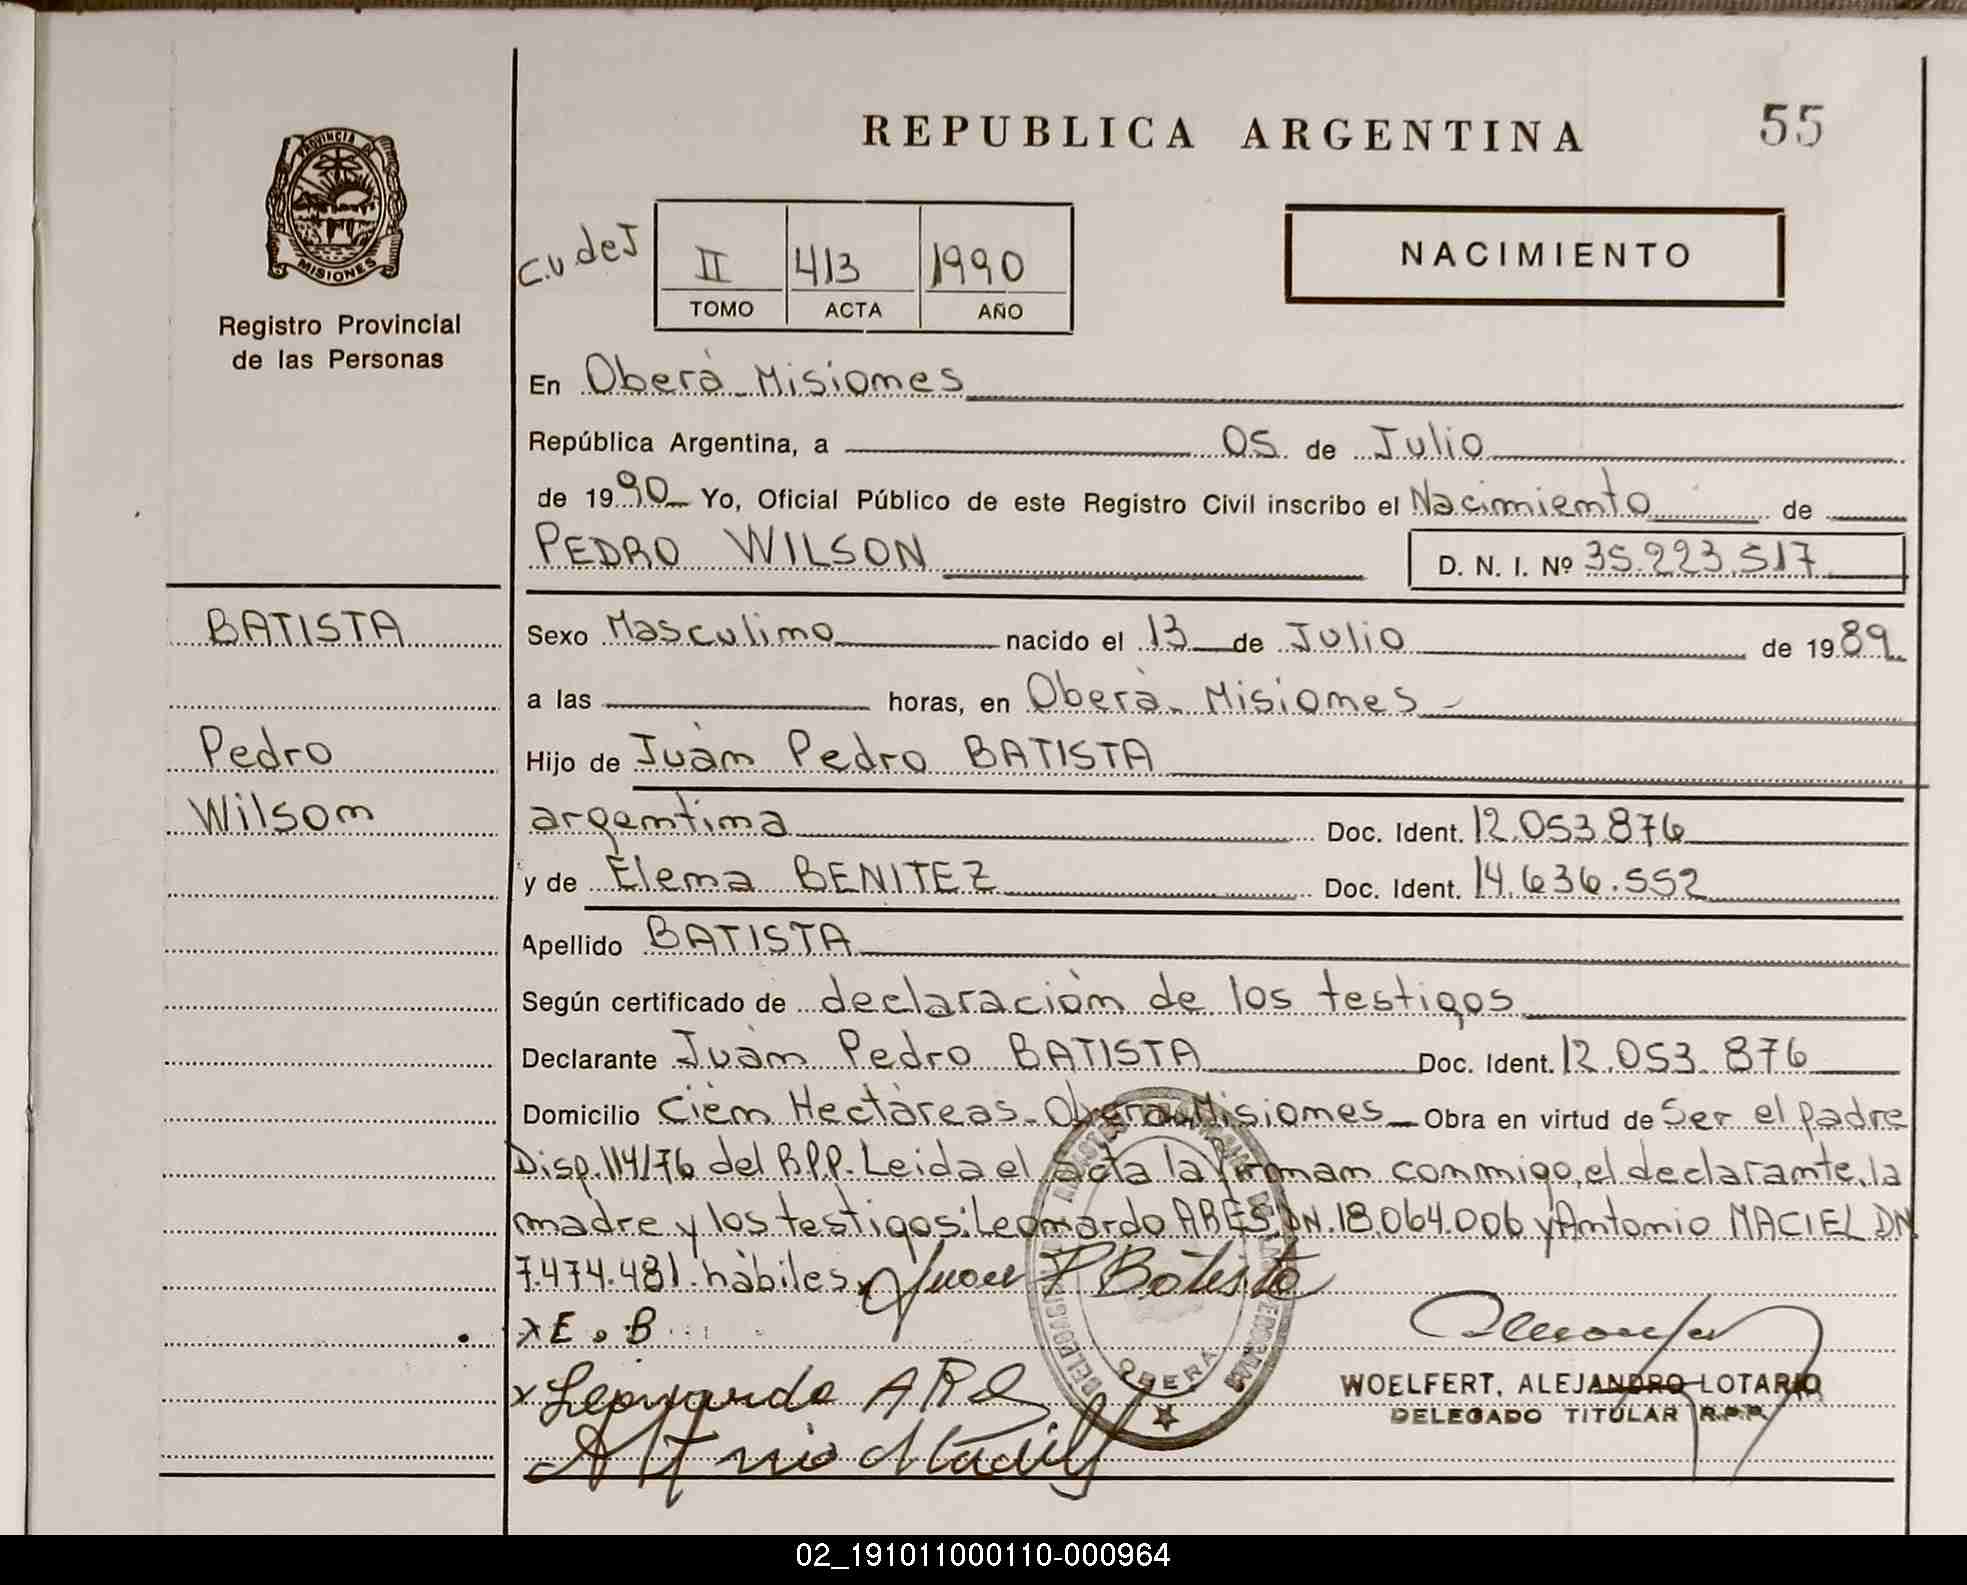 REPUBLICA ARGENTINA
55
PROVINCIA DE
MISIONES
Registro Provincial
de las Personas
C.U de J
II 413 1990
TOMO ACTA AÑO
NACIMIENTO
En Oberà Misiones
República Argentina, a 05 de Julio
de 1990 Yo, Oficial Público de este Registro Civil inscribo el Nacimiento de
PEDRO WILSON D. N. I. Nº 35.223.517
BATISTA
Sexo Masculino nacido el 13 de Julio de 1989
a las horas, en Oberà Misiones
Pedro
Hijo de Juàn Pedro BATISTA
Wilson
argentina Doc. Ident. 12.053.876
y de Elena BENITEZ Doc. Ident. 14.636.552
Apellido BATISTA
Según certificado de declaraciòn de los testigos
Declarante Juàn Pedro BATISTA Doc. Ident. 12.053.876
Domicilio Cièn Hectàreas-Oberà Misiones Obra en virtud de Ser el padre
Disp.114/76 del R.P.P. Leida el acta la firman conmigo, el declarante, la
madre y los testigos: Leonardo ARES DN.18.064.006 y Antonio MACIEL DN
7.474.481. hàbiles. x Juan P Batista
x E. B
x Leonardo ARES
Antonio Maciel
OBERA
WOELFERT, ALEJANDRO LOTARIO
DELEGADO TITULAR R.P.P.
02_191011000110-000964